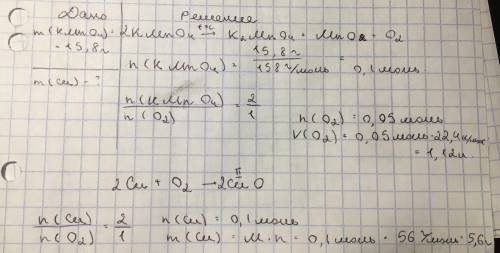 Дано Решение
m(KMnO₄) = 2KMnO₄ →t°C K₂MnO₄ + MnO₂ + O₂
= 15,8г
n(KMnO₄) = 15,8г / 158г/моль = 0,1 моль
m(Cu) - ?
n(KMnO₄) / n(O₂) = 2 / 1
n(O₂) = 0,05 моль
V(O₂) = 0,05 моль · 22,4 л/моль
= 1,12л
2Cu + O₂ → 2CuᴵᴵO
n(Cu) / n(O₂) = 2 / 1 n(Cu) = 0,1 моль
m(Cu) = M · n = 0,1 моль · 56 г/моль = 5,6г